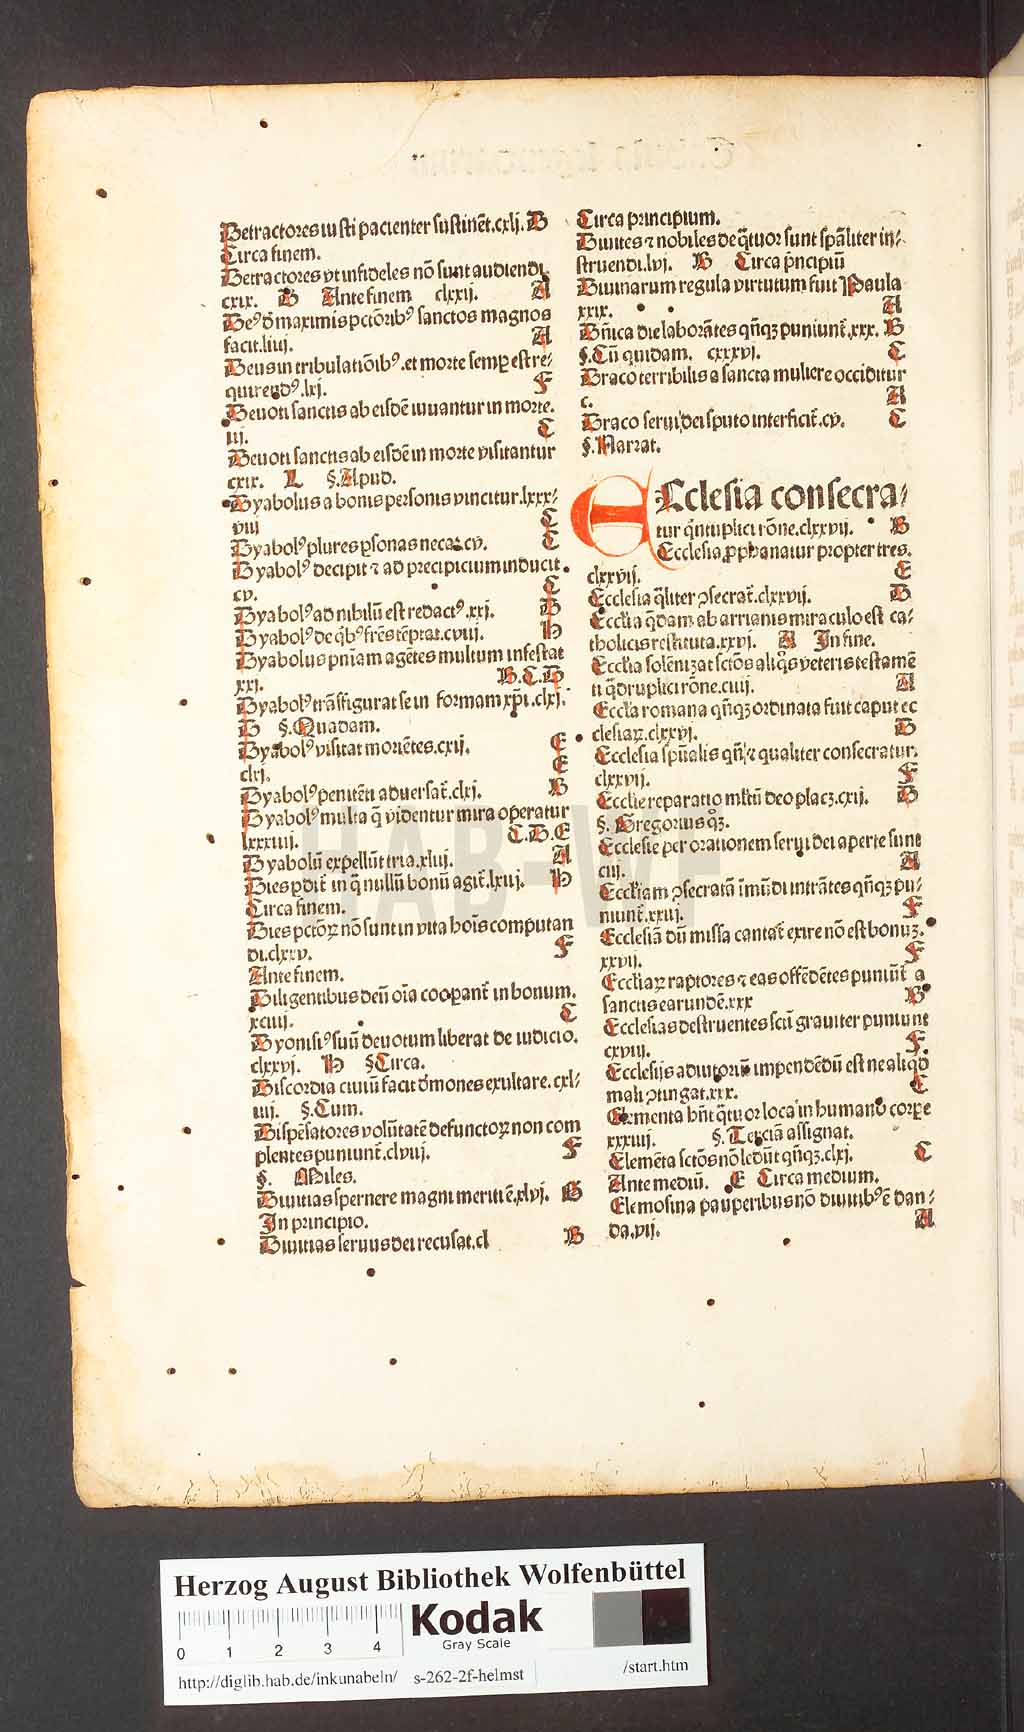 Detractores iusti pacienter sustinēt.cxlj. B
Circa finem.
Detractores vt infideles nō sunt audiendi.
cxix. B Ante finem clxxij. A
Deꝰ d̄ maximis pctōribꝰ sanctos magnos
facit.liiij. A
Deus in tribulatiōibꝰ.et morte semꝑ est re⸗
quirendꝰ.lxj. F
Deuoti sanctis ab eisdē iuuantur in morte.
iij. C
Deuoti sanctis ab eisdē in morte visitantur
cxix. L §.Apud.
Dyabolus a bonis personis vincitur.lxxx⸗
viij C
Dyabolꝰ plures ꝑsonas necat.cv. C
Dyabolꝰ decipit ⁊ ad precipicium inducit.
cv. C
Dyabolꝰ ad nibilū est redactꝰ.xxj. B
Dyabolꝰ de qͥbꝰ frēs tēptat.cviij. H
Dyabolus pn̄iam agētes multum infestat
xxj. B.C.D
Dyabolꝰ trāsfigurat se in formam xp̄i.clxj.
D §.Quadam.
Dyabolꝰ visitat moriētes.cxij. E
clxj. E
Dyabolꝰ penitēti aduersat̄.clxj. B
Dyabolꝰ multa q̄ videntur mira operatur
lxxxiiij. C.D.E
Dyabolū expellūt tria.xliij. A
Dies ꝑdit̄ in q̄ nullū bonū agit̄.lxiij. H
Circa finem.
Dies pctōꝝ nō sunt in vita hoīs computan
di.clxxv. F
Ante finem.
Diligentibus deū oīa cooꝑant̄ in bonum.
xciiij. C
Dyonisiꝰ suū deuotum liberat de iudicio.
clxxvj. H §Circa.
Discordia ciuiū facit d̄mones exultare.cxl⸗
iiij. §.Cum.
Dispēsatores volūtatē defunctoꝝ non com
plentes puniunt̄.clviij. F
§. Miles.
Diuitias spernere magni meriti ē.xlvj. G
In principio.
Diuitias seruus dei recusat.cl B
Circa principium.
Diuites ⁊ nobiles de q̄tuor sunt spāliter in⸗
struendi.lvj. B Circa p̄ncipiū
Diuinarum regula virtutum fuit Paula
xxix. A
Dn̄ica die laborātes qn̄qꝫ puniunt̄.xxx. B
§.Cū quidam. cxxxvj. C
Draco terribilis a sancta muliere occiditur
c. A
Draco serui dei sputo interficit̄.cv. C
§.Narrat.
ECclesia consecra⸗
tur qͥntuplici rōne.clxxvij. B
Ecclesia ꝓphanatur propter tres.
clxxvij. E
Ecclesia qͥliter ꝯsecrat̄.clxxvij. D
Ecclia q̄dam ab arrianis miraculo est ca⸗
tholicis restituta.xxvj. A In fine.
Ecclia solēnizat sctōs aliqͦs veteris testamē
ti q̄druplici rōne.ciiij. A
Ecclia romana qn̄qꝫ ordinata fuit caput ec
clesiaꝝ.clxxvj. D
Ecclesia spūalis qn̄ ⁊ qualiter consecratur.
clxxvij. F
Ecclie reparatio mltū deo placꝫ.cxij. D
§. Gregorius qͦꝫ.
Ecclesie per orationem serui dei aperte sunt
ciij. A
Eccliam ꝯsecratā īmūdi intrātes qn̄qꝫ pu⸗
niunt̄.xxiij. F
Ecclesiā dū missa cantat̄ exire nō est bonuꝫ.
xxvij. F
Eccliaꝝ raptores ⁊ eas offēdētes puniūt̄ a
sanctis earundē.xxx B
Ecclesias destruentes sctī grauiter puniunt
cxviij. F
Ecclesijs adiutoriū impendēdū est ne aliqͥd
mali ꝯtingat.xxx. C
Elementa hn̄t q̄tuor loca in humano corꝑe
xxxiiij. §.Terciā assignat.
Elemēta sctōs nō ledūt qn̄qꝫ.clxj. C
Ante mediū. E Circa medium.
Elemosina pauperibus nō diuitibꝰ ē dan⸗
da.vij. A
HAB-WF
Herzog August Bibliothek Wolfenbüttel
Kodak
Gray Scale
0 1 2 3 4
http://diglib.hab.de/inkunabeln/ s-262-2f-helmst /start.htm